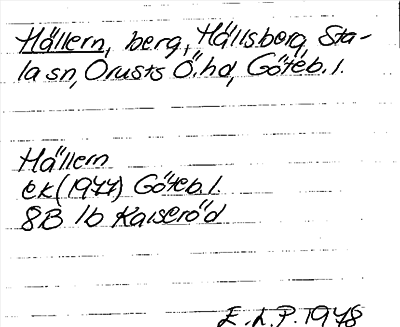 Hällern, berg, Hällsberg, Sta-
la sn, Orusts Ö. hd, Göteb. l.
Hällern
ek (1977) Göteb. l.
8B 1b Kaiseröd
E. L. P. 1978